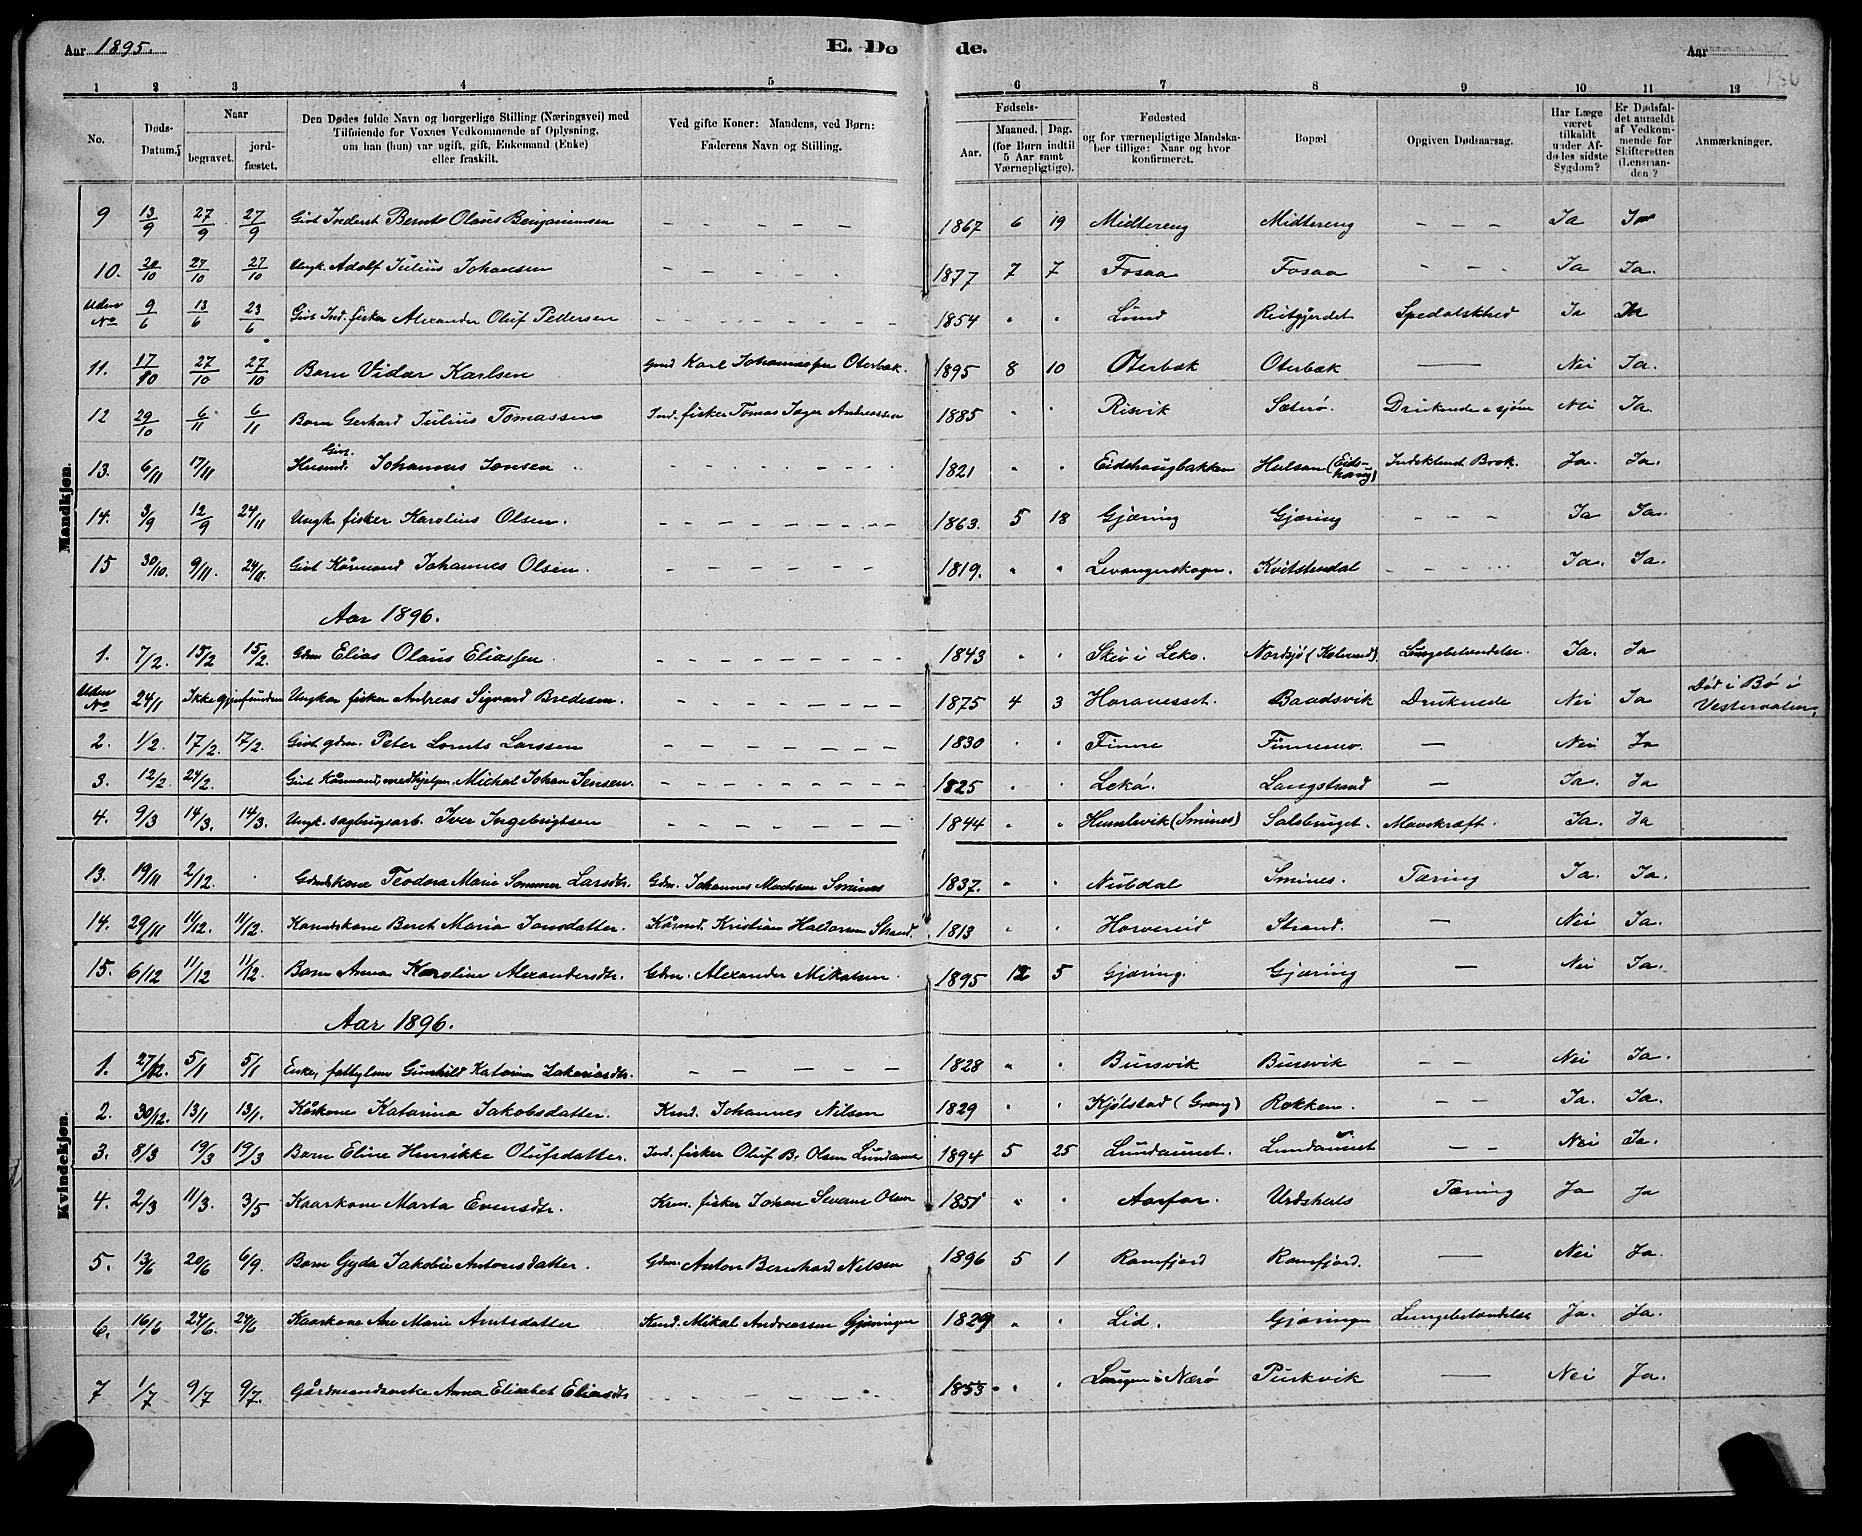 Aar 1895. E. Døde. Aar
136
1 2 3 4 5 6 7 8 9 10 11 12
No. Døds-Datum. Naar begravet. jordfæstet. Den Dødes fulde Navn og borgerlige Stilling (Næringsvei) med Tilføiende for Voxnes Vedkommende af Oplysning, om han (hun) var ugift, gift, Enkemand (Enke) eller fraskilt. Ved gifte Koner: Mandens, ved Børn: Faderens Navn og Stilling. Fødsels- Aar. Maaned. Dag. (for Børn indtil 5 Aar samt Værnepligtige). Fødested og for værnepligtige Mandskaber tillige: Naar og hvor konfirmeret. Bopæl Opgiven Dødsaarsag. Har Læge været tilkaldt under Afdødes sidste Sygdom? Er Dødsfaldet anmeldt af Vedkommende for Skifteretten (Lensmanden)? Anmærkninger.
Mandkjøn.
9 13/9 27/9 27/9 Givt Inderst Bernt Olaus Benjaminsen – – – – – 1867 6 19 Midtereng Midtereng – – – Ja Ja
10. 20/10 27/10 27/10 Ungk. Adolf Julius Johansen – – – – – 1877 7 7 Fosaa Fosaa – – – Ja Ja.
Uden No 9/6 13/6 23/6 Givt Ind. fisker Alexander Oluf Pettersen – – – – – – – 1854 " " Lund Reitgjerdet Spedalskhed Ja Ja
11. 17/10 27/10 27/10 Barn Vidar Karlsen Gmd Karl Johannessen Oterbæk. 1895 8 10 Oterbæk Oterbæk — Nei Ja.
12 29/10 6/11 6/11 Barn Gerhard Julius Tomassen Ind. fisker Tomas Jager Andreassen 1885 " " Risvik Sæterø. Druknede i sjøen Nei Ja
13. 6/11 17/11 Givt Husmd. Johannes Jonsen – – – – – – – 1821 " " Eidshaugbakken Hulsan (Eidshaug) Indeklemt Brok. Ja. Ja.
14. 3/9 12/9 24/11 Ungk. fisker Karolius Olsen. – – – – – – – 1863. 5 18 Gjæring Gjæring – – – Ja Ja.
15 30/10. 9/11. 24/11. Givt Kårmand Johannes Olsen. – – – – – – 1819. " " Levangerskogn. Kvitstendal – – – Ja. Ja.
Aar 1896.
1. 7/2. 15/2 15/2. Gdm Elias Olaus Eliassen. – – – – – – 1843 " " Skei i Leko. Nordsjø (Kolverid). Lungebetændelse. Ja. Ja
Uden No 24/1 Ikke gjenfunden Ungkar fisker Andreas Sigvard Bredesen. – – – – – – 1875 4 3 Horanesset. Baadsvik Druknede Nei Ja Død i Bø i Vesteraalen.
2. 1/2. 17/2. 17/2. Givt gdm. Peter Lornts Larssen – – – – – – 1830 " " Finne Finnemo. — Nei Ja
3. 12/2. 24/2. Givt Kårmand, medhjelper Michal Johan Jensen. – – – – – – 1825 " " Lekø. Langstrand — Ja. Ja
4. 9/3 14/3. 14/3. Ungk. sagbrugsarb. Iver Ingebrigtsen – – – – – – 1844 " " Humlevik (Smines) Salsbruget. Mavekræft. Ja. Ja
Kvindekjøn.
13. 19/11 2/12. Gdmdskone Teodora Marie Sommer Larsdtr. Gdm. Johannes Madssen Smines 1837. " " Nubdal Smines. Tæring Ja. Ja.
14. 29/11 11/12. 11/12. Karmdskone Beret Maria Jonsdatter. Kårmd. Kristian Haldorsen Strand. 1813 " " Horvereid Strand. — Nei Ja.
15. 6/12 11/12 11/12. Barn Anna Karoline Alexandersdtr. Gdm. Alexander Mikalsen. 1895 12 5 Gjæring. Gjæring — Nei Ja.
Aar 1896.
1. 27/12. 5/1 5/1 Enke, fattiglem Gunhild Katarina Zakariasdtr. – – – – – 1828 " " Bursvik Bursvik – – Nei Ja.
2. 30/12. 13/1 13/1. Kårkone Katarina Jakobsdatter. Kmd. Johannes Nilsen 1829 " " Kjølstad (Grong) Rokken. – – Ja. Ja.
3. 8/3 19/3 19/3 Barn Eline Henrikke Olufsdatter. Ind. fisker Oluf B. Olsen Lundaune 1894 5 25 Lundaunet. Lundaunet – – Nei Ja.
4. 2/3 11/3. 3/5 Kaarkone Marta Evensdtr. Krm. fisker Johan Severin Olsen 1851 " " Aarfor. Urdskels Tæring Ja Ja
5. 13/6 20/6 6/9. Barn Gyda Jakobie Antonsdatter. Gdm. Anton Bernhard Nilsen 1896 5 1 Ramfjord Ramfjord. — Nei Ja.
6. 16/6 24/6. 24/6 Kaarkone Ane Marie Arntsdatter Kmd. Mikal Andreassen Gjæringen 1829 " " Lid. Gjæringen Lungebetændelse Ja. Ja.
7 1/7 9/7 9/7. Gårdmandsenke Anna Elisabet Eliasdtr – – – – – – 1853 " " Laugen i Nærø Purkvik — Nei Ja.